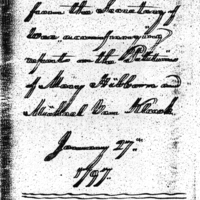 from the Secretary of
War accompanying
reports on the Petition
of Mary Hibborn and
Michael Van Kleeck
January 27th
1797.